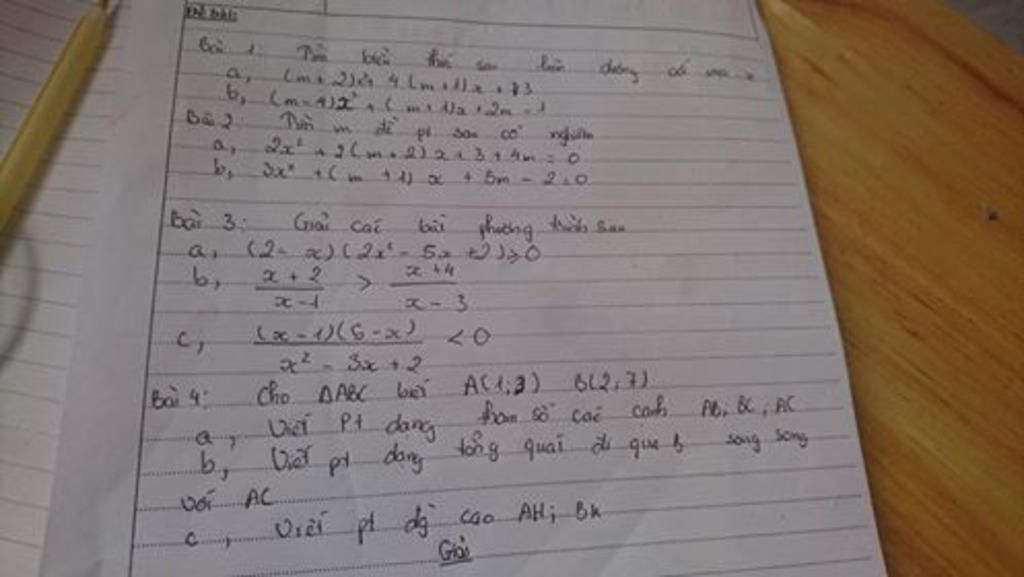 Bài 1: Tìm biểu thức sau luôn dương với mọi x
a, (m+2)x² 4(m+1)x + 13
b, (m-4)x² + (m+1)x + 2m - 1
Bài 2: Tìm m để pt sau có nghiệm
a, 2x² + 2(m+2)x + 3 + 4m = 0
b, 3x² + (m+1)x + 5m - 2 = 0
Bài 3: Giải các bất phương trình sau
a, (2-x)(2x² - 5x + 2) ≥ 0
b, x+2 / x-1 > x+4 / x-3
c, (x-1)(5-x) / x² - 3x + 2 < 0
Bài 4: Cho ΔABC biết A(1;3) B(2,7)
a, Viết Pt dạng tham số các cạnh AB; BC; AC
b, Viết pt dạng tổng quát đi qua B song song
với AC
c, Viết pt đg cao AH; BK
Giải